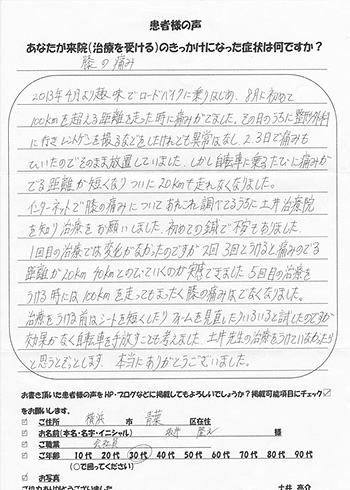 患者様の声
あなたが来院(治療を受ける)のきっかけになった症状は何ですか？
膝の痛み
2013年4月より趣味でロードバイクに乗りはじめ、8月に初めて
100kmを超える距離を走った時に痛みがでました。その日のうちに整形外科
に行きレントゲンを撮るなどをしたけれども異常はなし、2、3日で痛みも
ひいたのでそのまま放置していました。しかし自転車に乗るたびに痛みが
でる距離が短くなりついに20kmも走れなくなりました。
インターネットで膝の痛みについてあれこれ調べてるうちに土井治療院
を知り治療をお願いしました。初めての鍼で不安もありました。
1回目の治療では変化がなかったのですが2回3回とうけると痛みのでる
距離が20km 40kmとのびていくのが実感できました。5回目の治療を
うける時には100kmを走ってもまったく膝の痛みはでなくなりました。
治療をうける前はシートを短くしたりフォームを見直したりいろいろと試したのですが
効果がなく自転車を手放すことも考えました。土井先生の治療をうけていなかったら
と思うとぞっとします。本当にありがとうございました。
お書き頂いた患者様の声をHP・ブログなどに掲載してもよろしいでしょうか？掲載可能項目にチェック☑
をお願いします。
☑ ご住所 横浜 市 青葉 区在住
☑ お名前(本名・名字・イニシャル) 様
☑ ご職業 会社員
☑ ご年齢 10代 20代 30代 40代 50代 60代 70代 80代 90代
(○で囲ってください)
☑ お写真